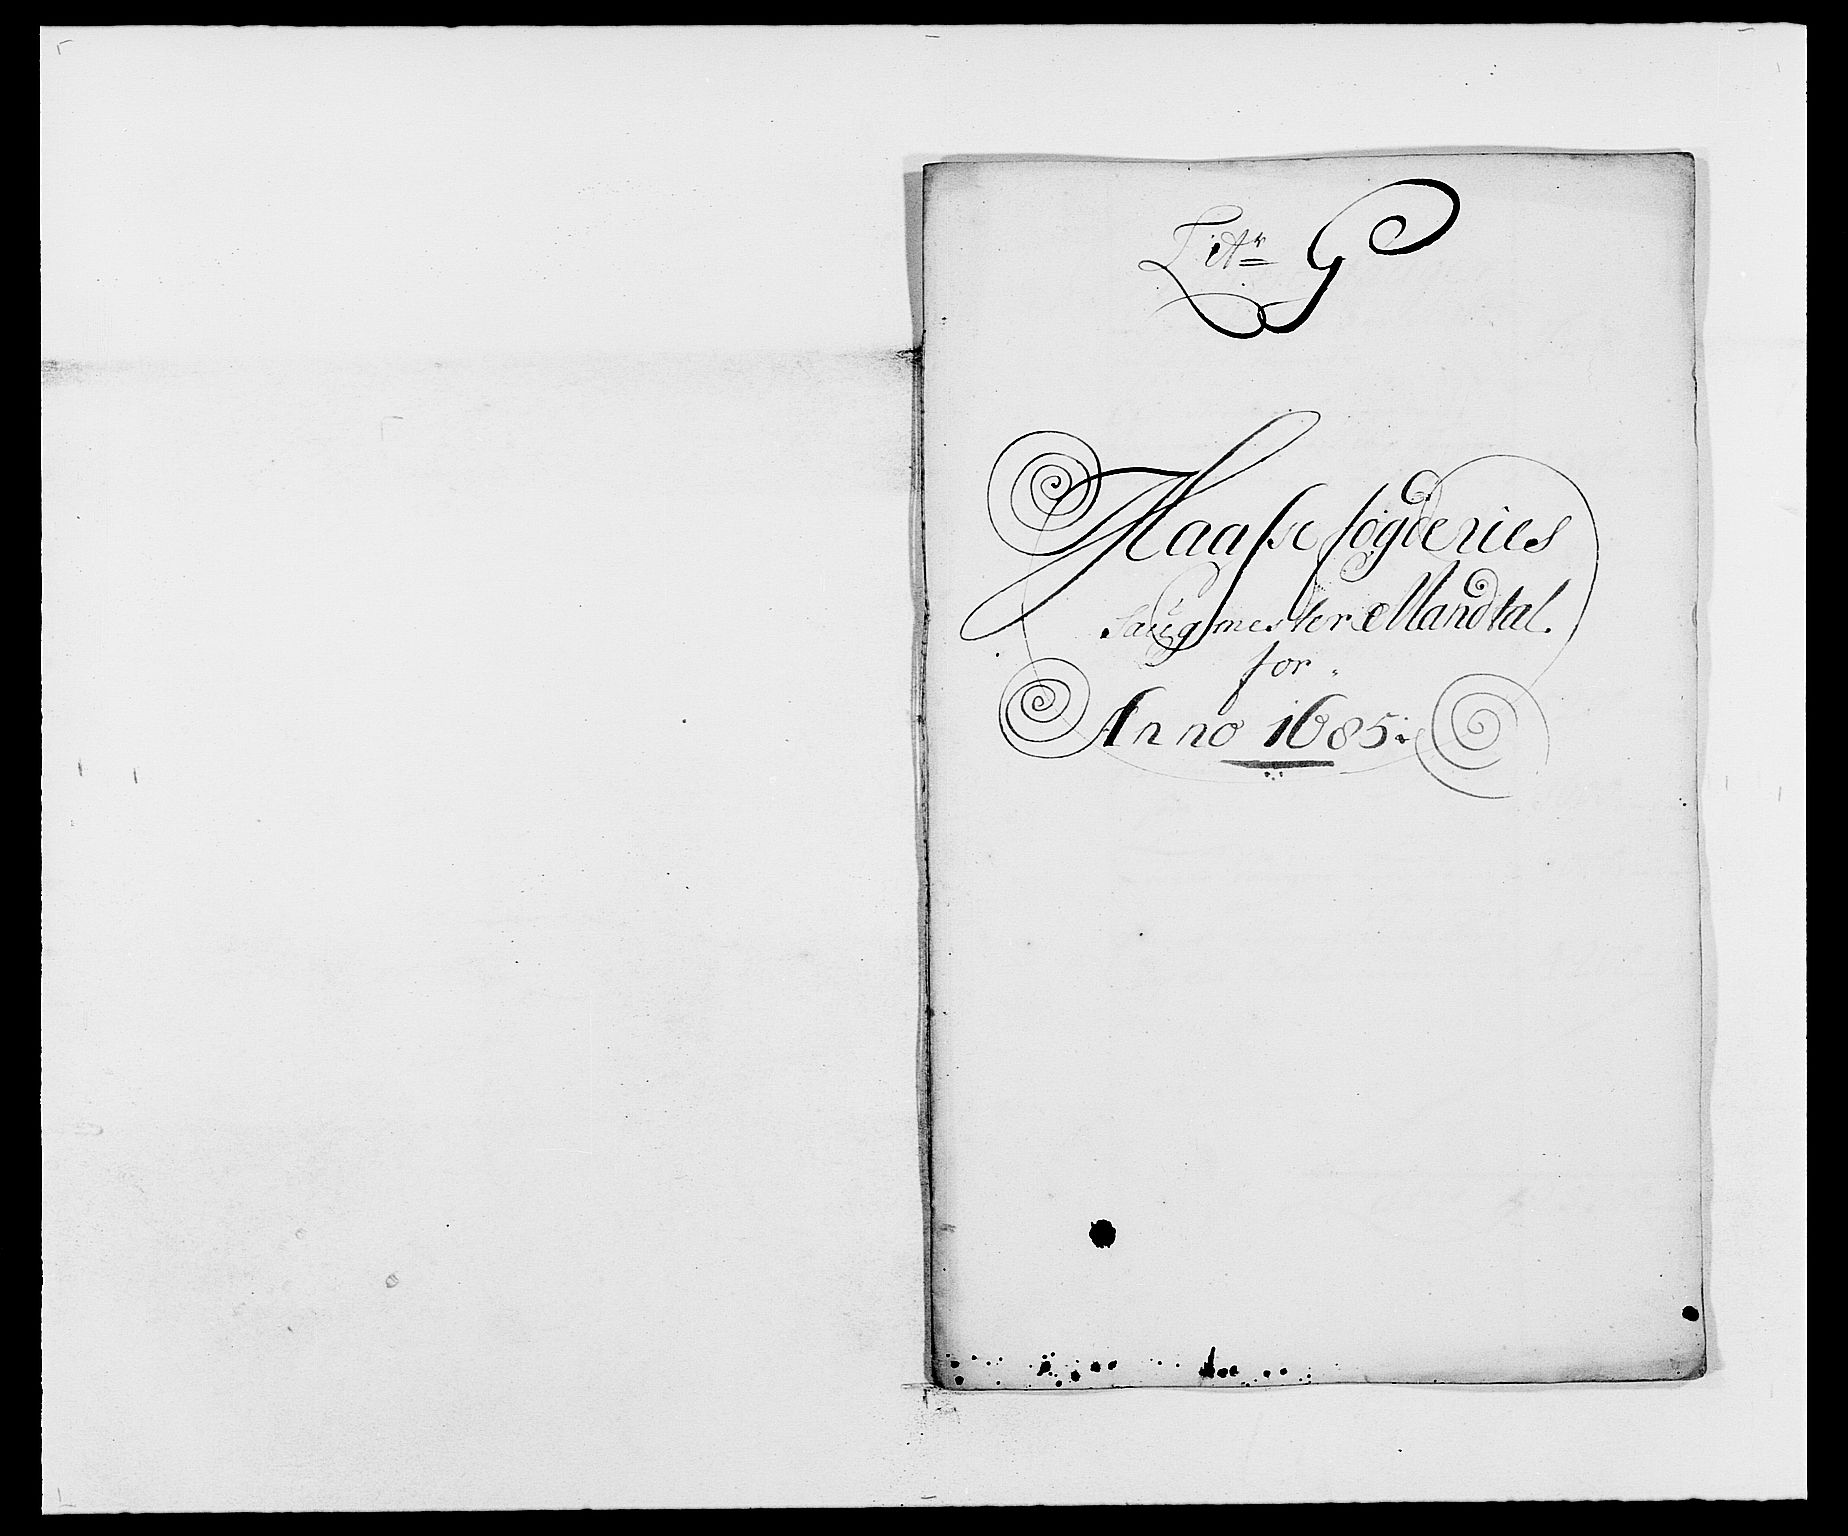 Litr G
Haafse fogderies
Saugmester Mandtal.
for
Anno 1685: